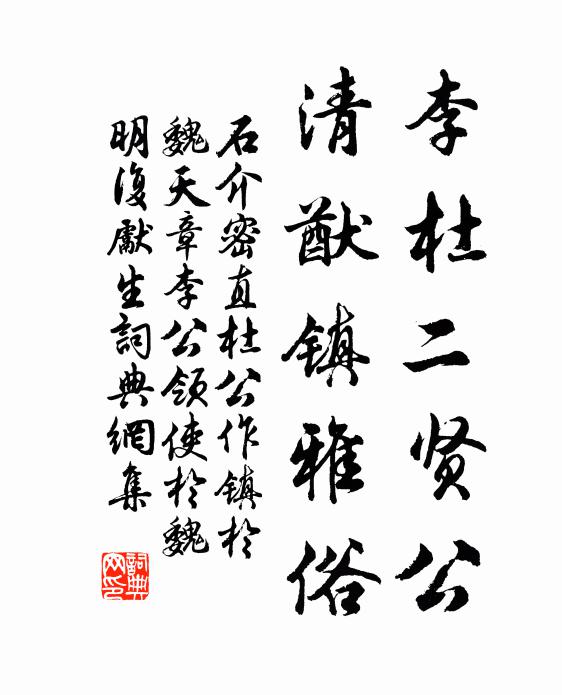 李杜二贤公
清猷镇雅俗
石介密直杜公作镇於
魏天章李公领使於魏
明復獻生詞典網集
詞典網印